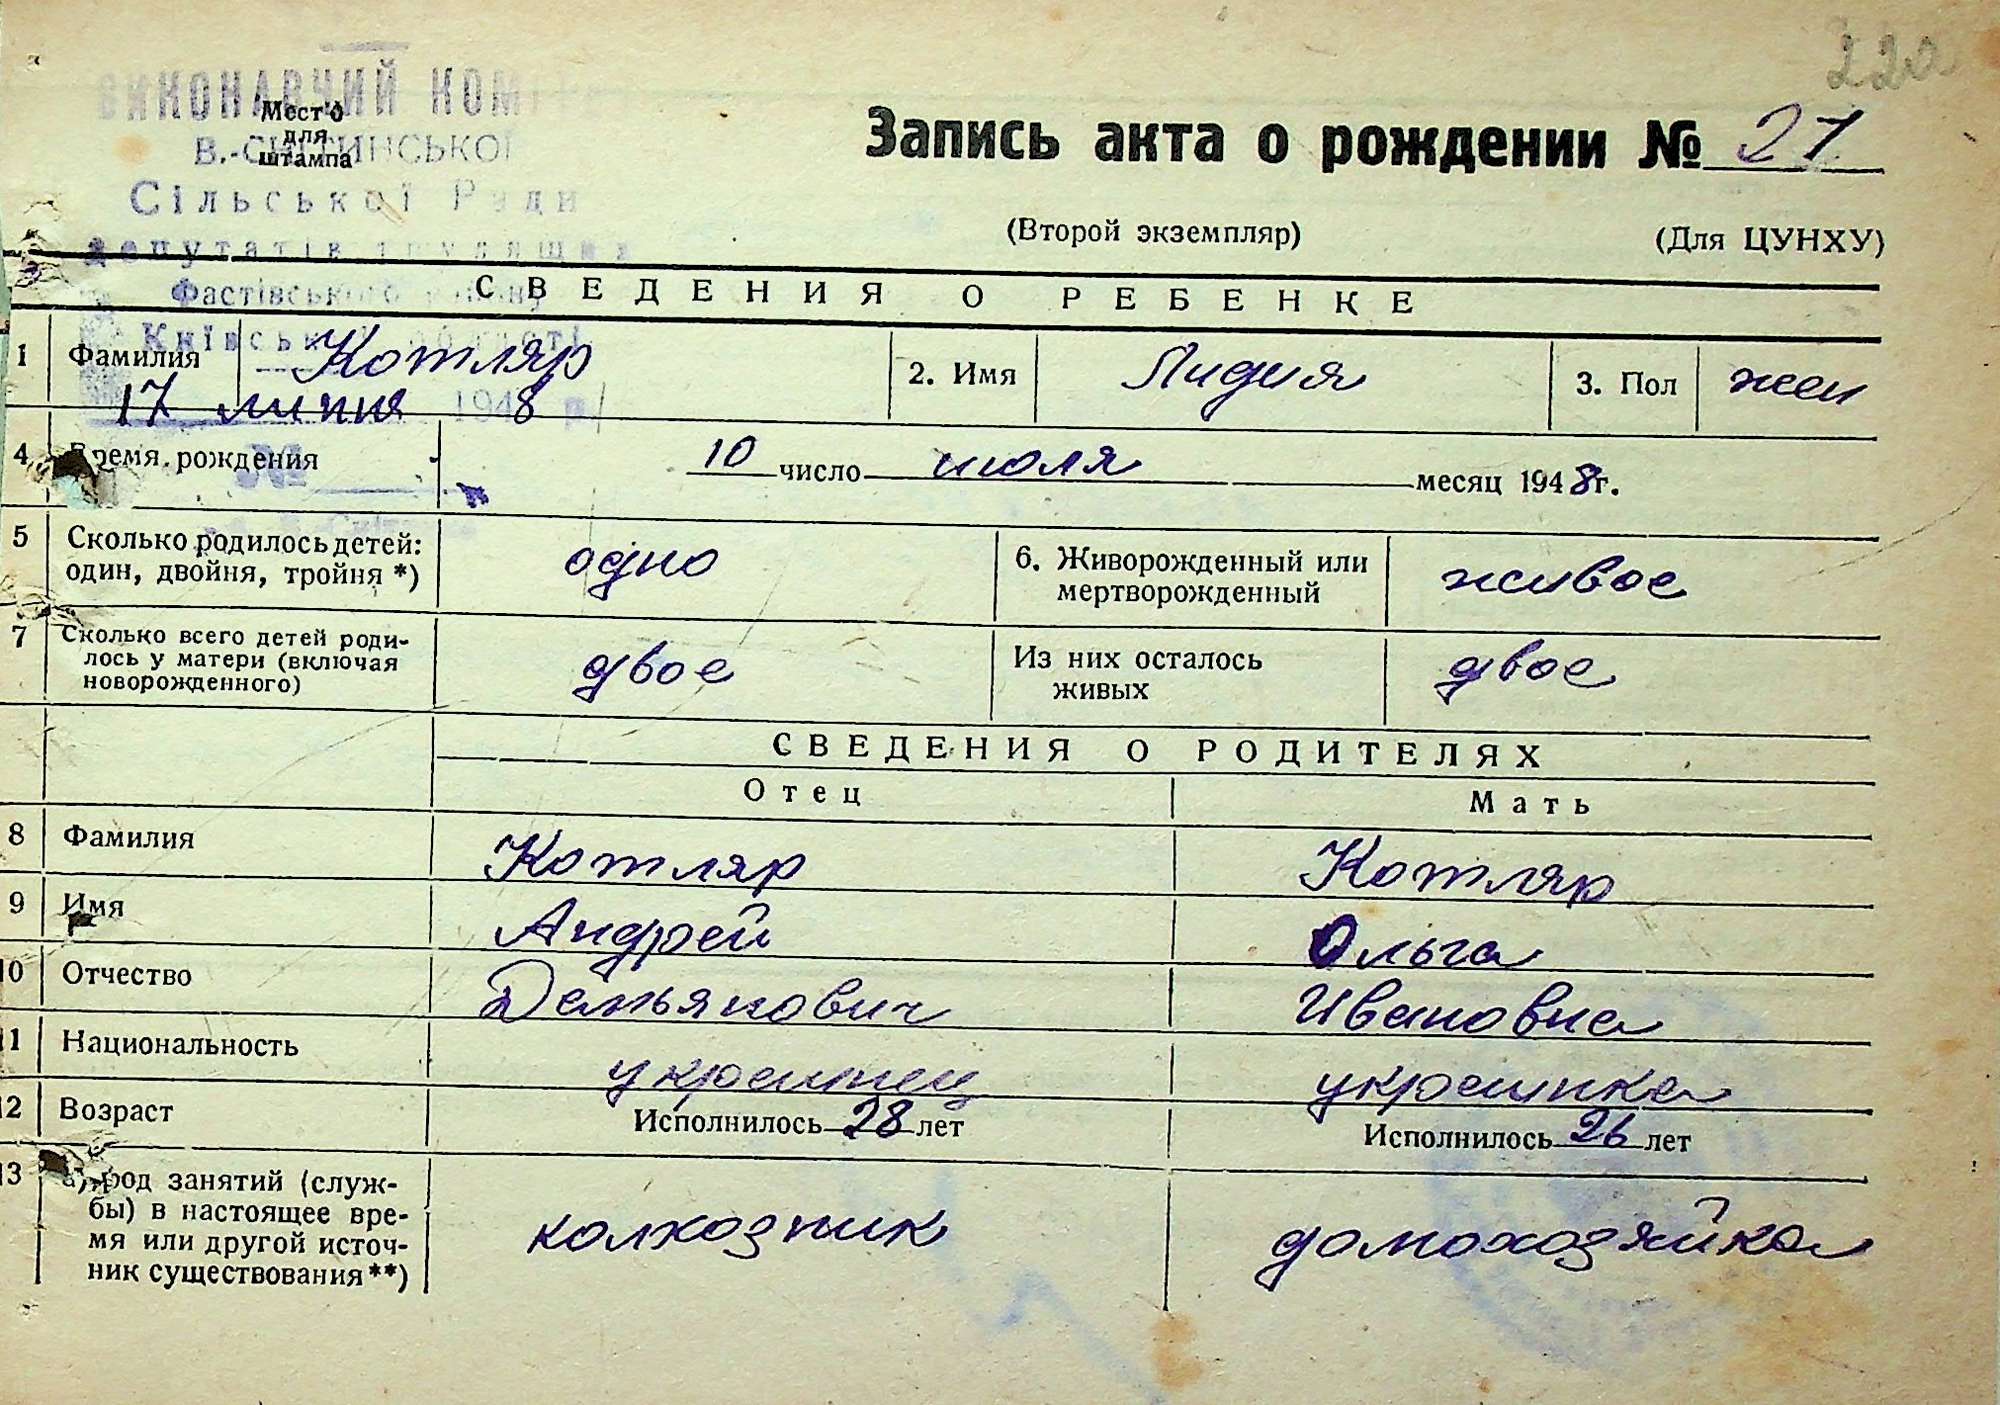 220
ВИКОНАВЧИЙ КОМ
Место
для
штампа
В.-СНІТИНСЬКОЇ
Сільської Ради
депутатів трудящих
Фастівського
Київської області
17 липня 1948 р.
№
Запись акта о рождении № 27
(Второй экземпляр) (Для ЦУНХУ)
СВЕДЕНИЯ О РЕБЕНКЕ
1 Фамилия Котляр 2. Имя Лидия 3. Пол жен
4 Время рождения 10 число июля месяц 1948 г.
5 Сколько родилось детей: один, двойня, тройня *) одно 6. Живорожденный или мертворожденный живое
7 Сколько всего детей роди-
лось у матери (включая
новорожденного) двое Из них осталось живых двое
СВЕДЕНИЯ О РОДИТЕЛЯХ
Отец Мать
8 Фамилия Котляр Котляр
9 Имя Андрей Ольга
10 Отчество Демьянович Ивановна
11 Национальность украинец украинка
12 Возраст Исполнилось 28 лет Исполнилось 26 лет
13 а) род занятий (служ-
бы) в настоящее вре-
мя или другой источ-
ник существования **) колхозник домохозяйка